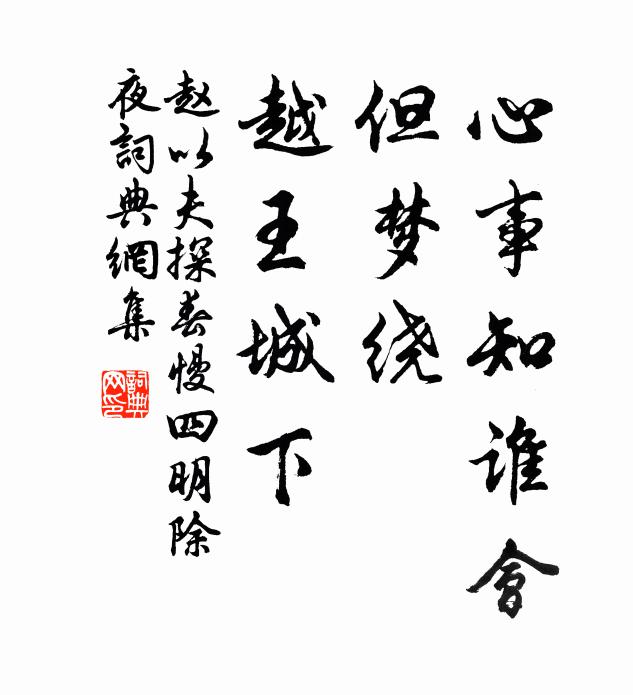 心事知谁會
但梦绕
越王城下
赵以夫探春慢四明除
夜詞典網集
詞典网印